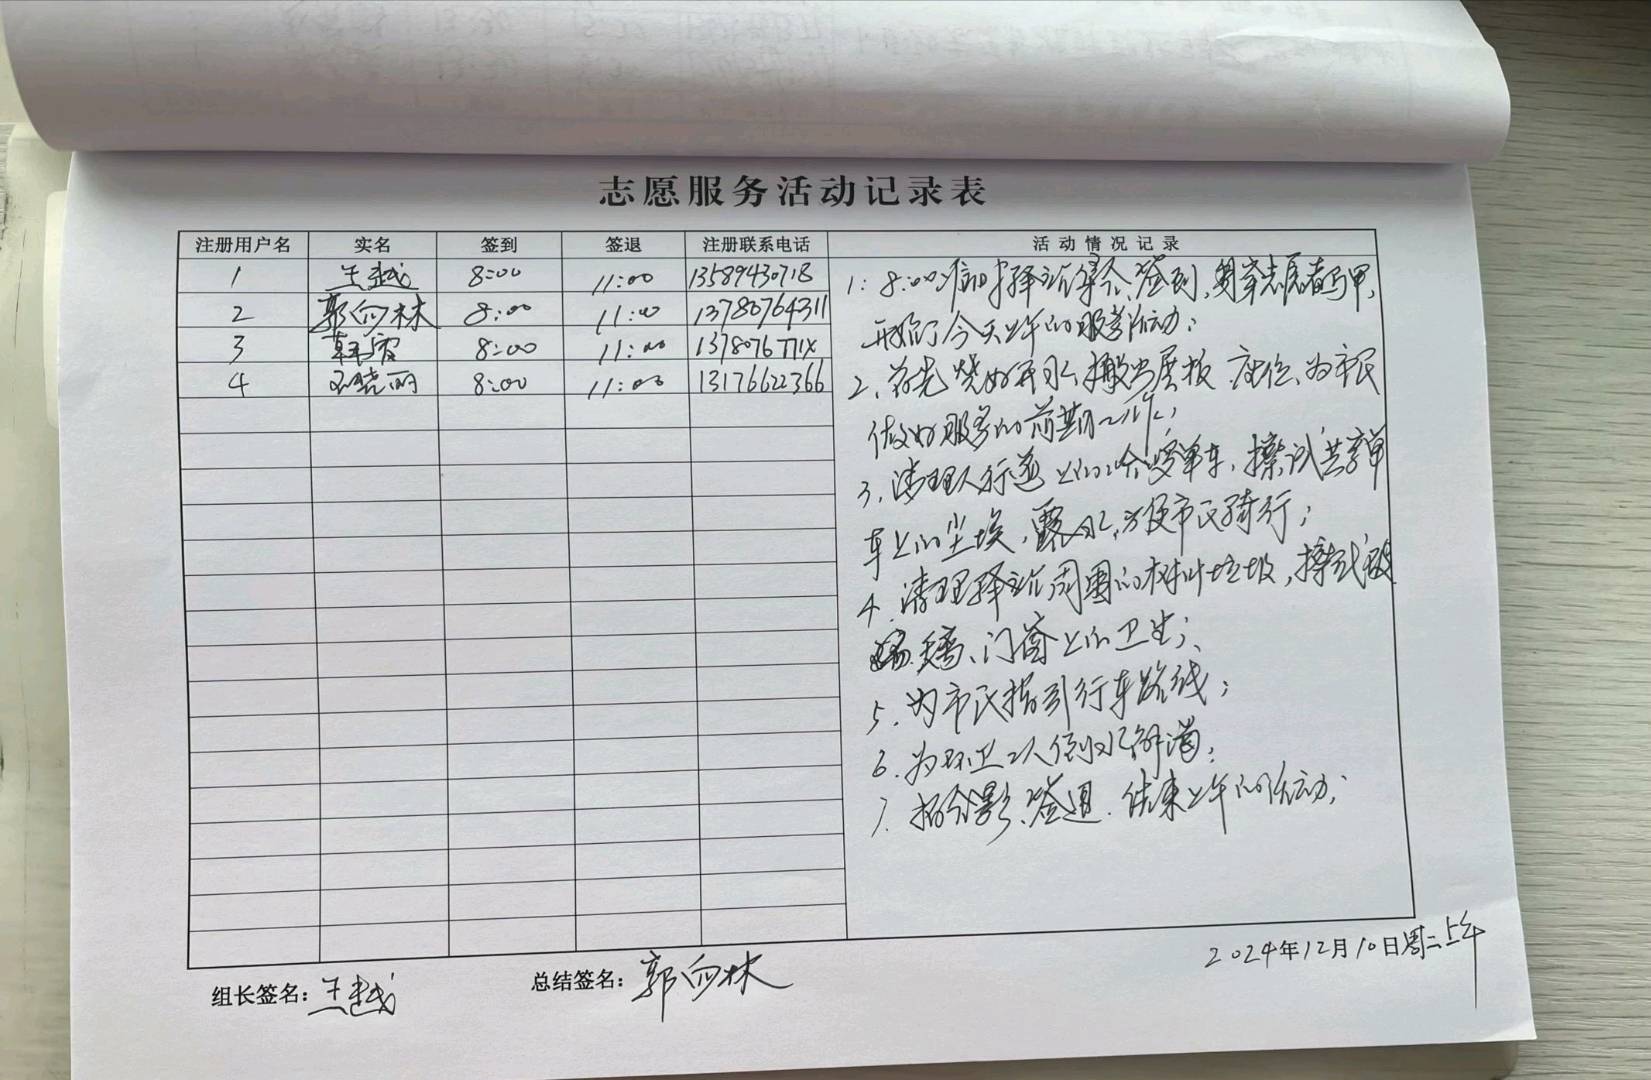 志愿服务活动记录表
注册用户名 实名 签到 签退 注册联系电话 活动情况记录
1 王越 8:00 11:00 13589430718
2 郭向林 8:00 11:00 13780764311
3 8:00 11:00
4 晓丽 8:00 11:00 13176622366
1: 8:00 驿站集合、签到,穿志愿者马甲,
开始了今天上午的服务活动;
2、首先烧好开水,搬出展板、座位、为市民
做好服务的前期工作;
3、清理人行道上的共享单车,擦试共享单
车上的尘埃,露水,方便市民骑行;
4、清理驿站周围的树叶垃圾,擦试玻
璃、门窗上的卫生;
5、为市民指引行车路线;
6、为环卫工人倒水解渴;
7、拍合影、签退、结束上午的活动;
2024年12月10日周二上午
组长签名:王越 总结签名:郭向林